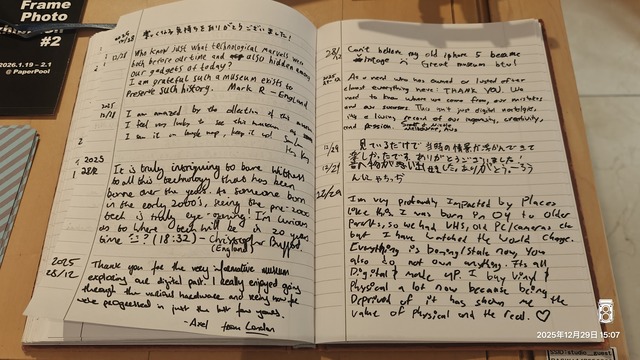 Frame
Photo
#2
2026.1.19 – 2.1
@ PaperPool
12/28
ありがとうございました!
12/28
Who know just what technological marvels were
both before our time and also hidden among
our gadgets of today?
I am grateful such a museum exists to
preserve such history. Mark R - England
2025
12/28
I am amazed by the collection of this museum
I feel very lucky to see this museum
2025
28/12
It is truly intriguing to bare witness
to all this technology that has been
borne over the years. As someone born
in the early 2000's, seeing the pre-2000
tech is truly eye-opening! I'm curious
as to where tech will be in 20 years
time (18:32) - Christopher
(England)
2025
28/12
Thank you for the very informative museum
exploring our digital past. I really enjoyed going
through the various hardware and seeing how far
we progressed in just the last few years.
- Axel from London
28/12
Can't believe my old iphone 5 became
vintage Great museum btw!
As a nerd who has owned or lusted after
almost everything here: THANK YOU. We
need to know where we came from, our mistakes
and our successes. This isn't just digital nostalgia,
it's a living record of our ingenuity, creativity,
and passion.
12/29
見ているだけで当時の情景が浮かんできて
楽しかったです。ありがとうございました!
12/29
22/29
I'm very profoundly impacted by Places
like this. I was born in 04 to older
Parents, so we had VHS, old PC/cameras etc
but I have watched the world change.
Everything is boring/stale now, you
also do not own anything. It's all
Digital & made up. I buy vinyl &
Physical a lot now because being
Deprived of it has shown me the
value of physical and the real. ♡
2025年12月29日 15:07